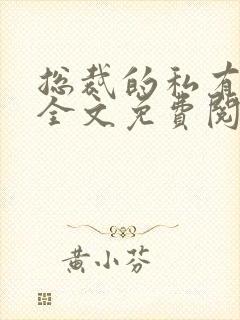 总裁的私有
全文免费阅
黄小芬